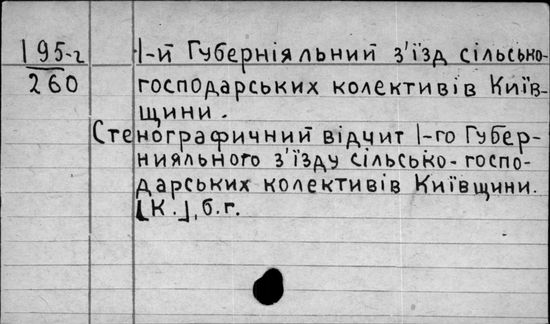 195-г
260
1-й Губерніяльний з'їзд сільсько-
господарських колективів Київ-
щини.
Стенографичний відчит 1-го Губер-
нияльного з'їзду сільсько-госпо-
дарських колективів Київщини.
[К.], б.г.